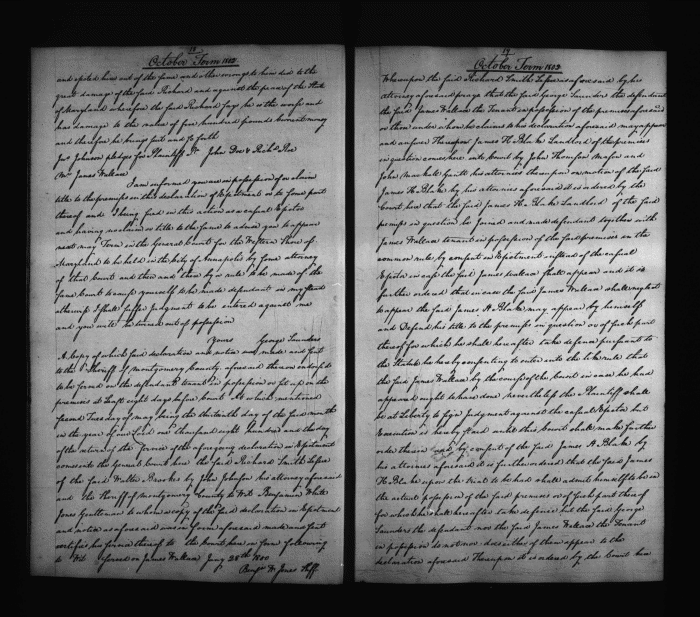 13
October Term 1802
and ejected him out of the same and other wrongs to him did to the
great damage of the said Richard and against the peace of the State
of Maryland wherefore the said Richard says he is the worse and
has damage to the value of five hundred pounds Current money
and therefore he brings suit and so forth
Jno Johnson pledges for Plaintiff Ss John Doe & Richd Roe
Mr. James Wallace
I am informed you are in possession of or claim
title to the premises in this declaration of Ejectment or to some part
thereof and I being sued in this action as a casual Ejector
and having no claim or title to the same to advise you to appear
next May Term in the General Court for the Western Shore of
Maryland to be held in the City of Annapolis by some attorney
of that Court and then and there by a rule to be made of the
same Court to cause yourself to be made defendant in my stead
otherwise I shall suffer Judgment to be entered against me
and you will be turned out of possession
Yours George Saunders
A Copy of which said declaration and notice was made and sent
to the Sheriff of Montgomery County aforesaid thereon endorsed
to be served on the defendant tenant in possession or set up on the
premises at least eight days before Court At which mentioned
second Tuesday of May being the thirteenth day of the said month
in the year of our Lord one thousand eight hundred and the day
of the return of the service of the aforegoing declaration in Ejectment
comes into the General Court here the said Richard Smith Lessee
of the said Walter Brookes by John Johnson his attorney aforesaid
and the Sheriff of Montgomery County to Wit Benjamin White
Jones Gentleman to whom a copy of the said declaration in Ejectment
and notice as aforesaid was in form aforesaid made and sent
certifies his service thereof to the Court here in form following
to Wit Served on James Wallace Jany 28th 1800
Benjn W Jones Shff
14
October Term 1802
Whereupon the said Richard Smith Lessee as aforesaid by his
attorney aforesaid prays that the said George Saunders the defendant
the said James Wallace the Tenant in possession of the premises aforesaid
or them under whom he claims to his declaration aforesaid may appear
and answer Thereupon James H. Blake Landlord of the premises
in question comes here into Court by John Thomson Mason and
John his attornies thereupon on motion of the said
James H. Blake by his attornies aforesaid it is ordered by the
Court here that the said James H. Blake Landlord of the said
premises in question be joined and made defendant together with
James Wallace tenant in possession of the said premises in the
common rule by consent in Ejectment instead of the casual
Ejector in case the said James Wallace shall appear and it is
further ordered that in case the said James Wallace shall neglect
to appear the said James H. Blake may appear by himself
and Defend his title to the premises in question or of such part
thereof for which he shall hereafter take defence pursuant to
the Statute he hereby consenting to enter into the like rule that
the said James Wallace by the course of the Court in case he had
appeared ought to have done nevertheless the Plaintiff shall
be at Liberty to sign Judgment against the casual Ejector but
Execution is hereby stayed until this Court shall make further
order therein and by consent of the said James H. Blake by
his attornies aforesaid it is further ordered that the said James
H. Blake upon the trial to be had shall admit himself to be in
the actual possession of the said premises or of such part thereof
for which he shall hereafter take defence but the said George
Saunders the defendant nor the said James Wallace the Tenant
in possession do not nor does either of them appear to the
declaration aforesaid Thereupon it is ordered by the Court here